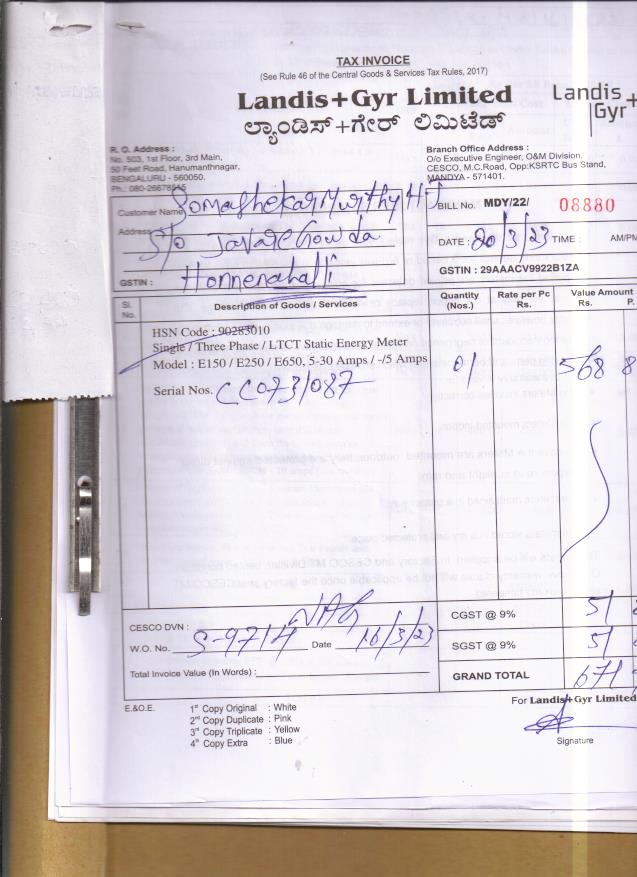 TAX INVOICE
(See Rule 46 of the Central Goods & Services Tax Rules, 2017)
Landis+Gyr Limited
ಲ್ಯಾಂಡಿಸ್+ಗೇರ್ ಲಿಮಿಟೆಡ್
Landis
Gyr+
R. O. Address :
No. 503, 1st Floor, 3rd Main,
50 Feet Road, Hanumanthnagar,
BENGALURU - 560050.
Ph.: 080-26678515
Branch Office Address :
O/o Executive Engineer, O&M Division.
CESCO, M.C.Road, Opp:KSRTC Bus Stand,
MANDYA - 571401.
Customer Name Somashekar Murthy H J
Address S/o Javaregowda
GSTIN : Honnenahalli
BILL No. MDY/22/ 08880
DATE : 20/3/23 TIME : AM/PM
GSTIN : 29AAACV9922B1ZA
Sl. No. Description of Goods / Services Quantity (Nos.) Rate per Pc Rs. Value Amount Rs. P.
HSN Code : 90283010
Single / Three Phase / LTCT Static Energy Meter
Model : E150 / E250 / E650, 5-30 Amps / -/5 Amps 01 568 8
Serial Nos. CC073/087
CESCO DVN :
W.O. No. S-9714 Date 16/3/23
Total Invoice Value (In Words) :
CGST @ 9% 51
SGST @ 9% 51
GRAND TOTAL 671
E.&O.E.
1st Copy Original : White
2nd Copy Duplicate : Pink
3rd Copy Triplicate : Yellow
4th Copy Extra : Blue
For Landis+Gyr Limited
Signature